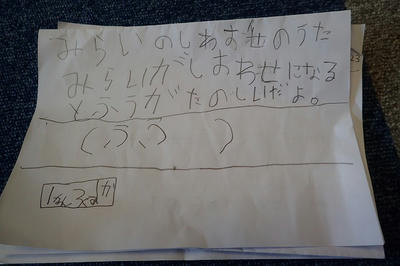 みらいのしあわせのうた
みらいがしあわせになる
とふうがたのしいだよ。
(う、う )